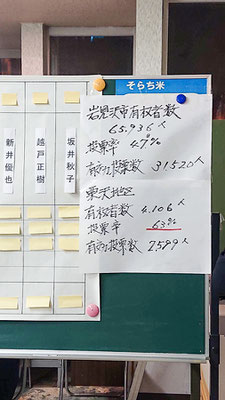 そらち米
新井優也
越戸正樹
坂井秋子
岩見沢市有权者数
65.936人
投票率
47%
有効投票数 31520人
栗沢地区
有权者数 4.106人
投票率 63%
有効投票数 2599人